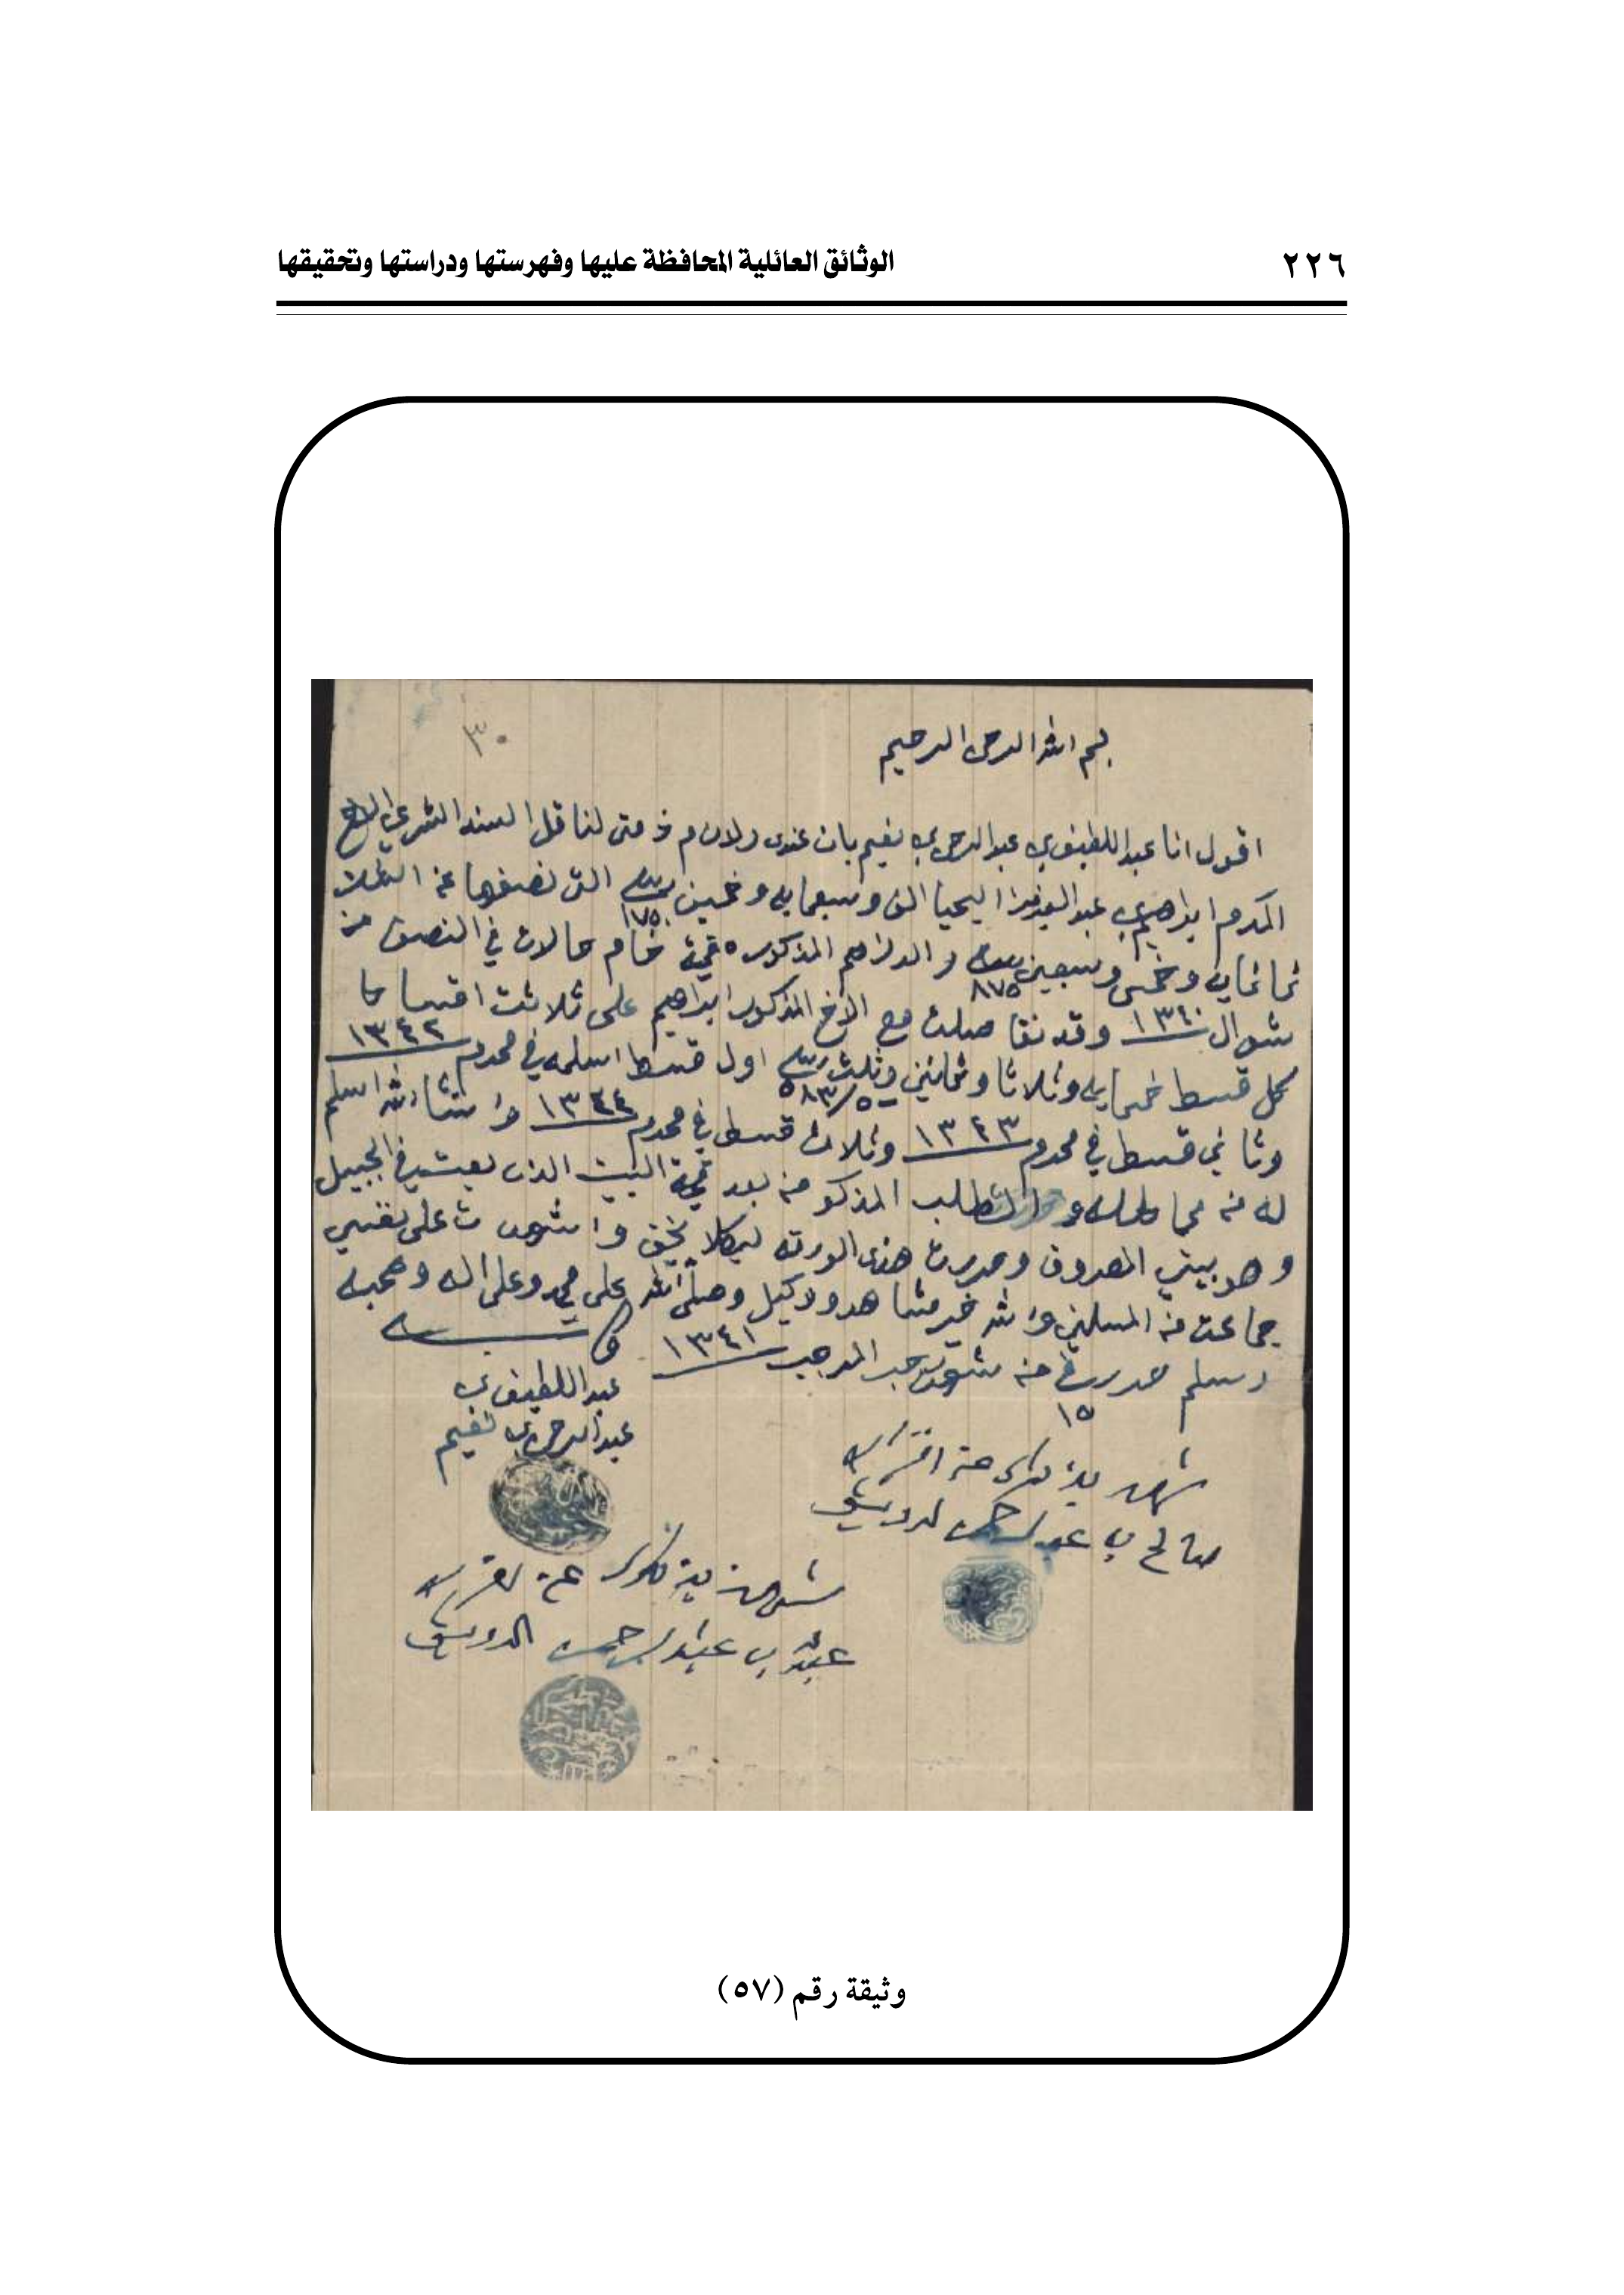 ٢٢٦ الوثائق العائلية المحافظة عليها وفهرستها ودراستها وتحقيقها
٣٠
بسم الله الرحمن الرحيم
اقول انا عبد اللطيف بن عبد الرحمن بن نغيم بان عندي ولازم ذمتي لناقل السند الشرعي الاخ
المكرم ابراهيم بن عبد العزيز اليحيا الف وسبعمايه وخمسين ١٧٥٠ التي نصفها عن الغلط
ثمانمايه وخمس وسبعين ٨٧٥ والدراهم المذكوره قيمة خام حالات في النصف من
شوال ١٣٤٠ وقد تفاصلت مع الاخ المذكور ابراهيم على ثلاثت اقساط
كل قسط خمسمايه وثلاثا وثمانين وثلث ٥٨٣/٥ اول قسط اسلمه في محرم ١٣٤٢
وثاني قسط في محرم ١٣٤٣ وثلاث قسط في محرم ١٣٤٤ وانشاء الله اسلم
له من الطلب المذكور من بعد قيمة البيت الذي بعته في الجبيل
وهو بيتي المعروف وحررت هذه الورقه ليكلا يخفى واشهدت على نفسي
جماعت من المسلمين والله خير شاهد ووكيل وصلى الله على محمد وعلى اله وصحبه
وسلم حرر في ١٥ من شهر رجب المرجب ١٣٤١
عبد اللطيف بن
عبد الرحمن نغيم
شهد بذلك عن اقراره
صالح بن عبد الرحمن الدويش
شهد بذلك عن اقراره
عبد الله بن عبد الرحمن الدويش
وثيقة رقم (٥٧)